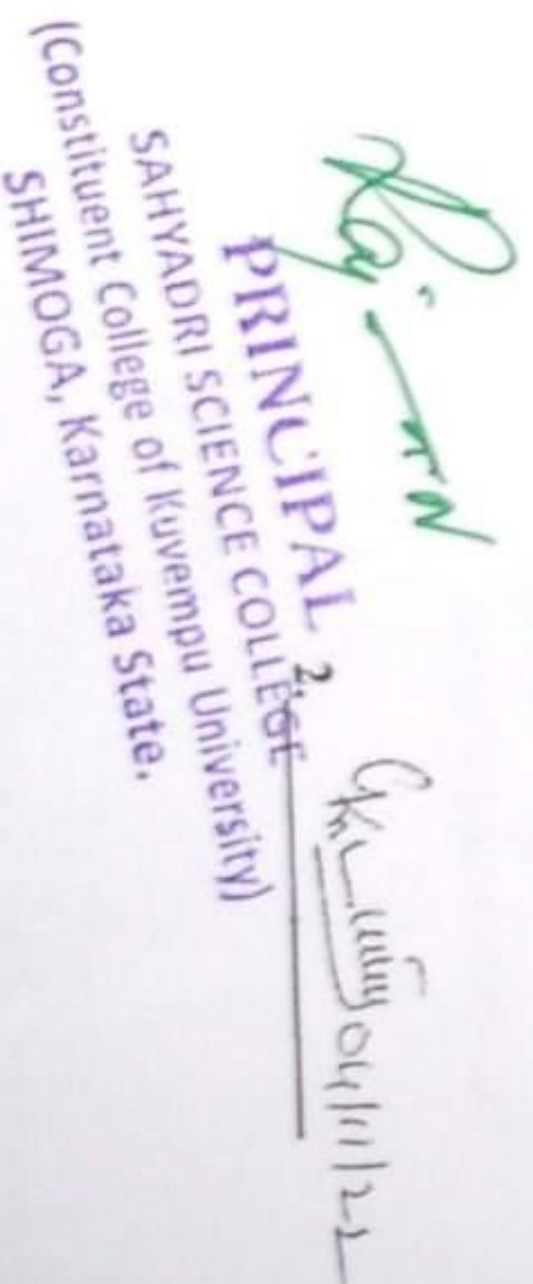 PRINCIPAL
SAHYADRI SCIENCE COLLEGE
(Constituent College of Kuvempu University)
SHIMOGA, Karnataka State.
2.
04/11/22